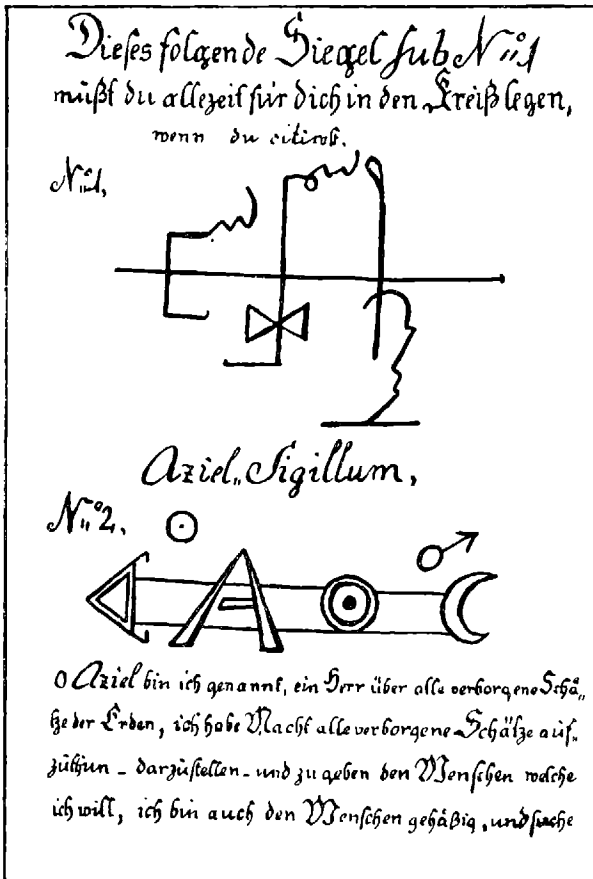 Dieses folgende Siegel sub No 1
müßt du allezeit für dich in den Kreiß legen,
wenn du citirst.
No 1,
Aziel,, Sigillum,
No 2,
O Aziel bin ich genannt, ein Herr über alle verborgene Schä,,
tze der Erden, ich habe Macht alle verborgene Schätze auf,,
züthun - darzüstellen - und zu geben den Menschen welche
ich will, ich bin auch den Menschen gehäßig, und suche